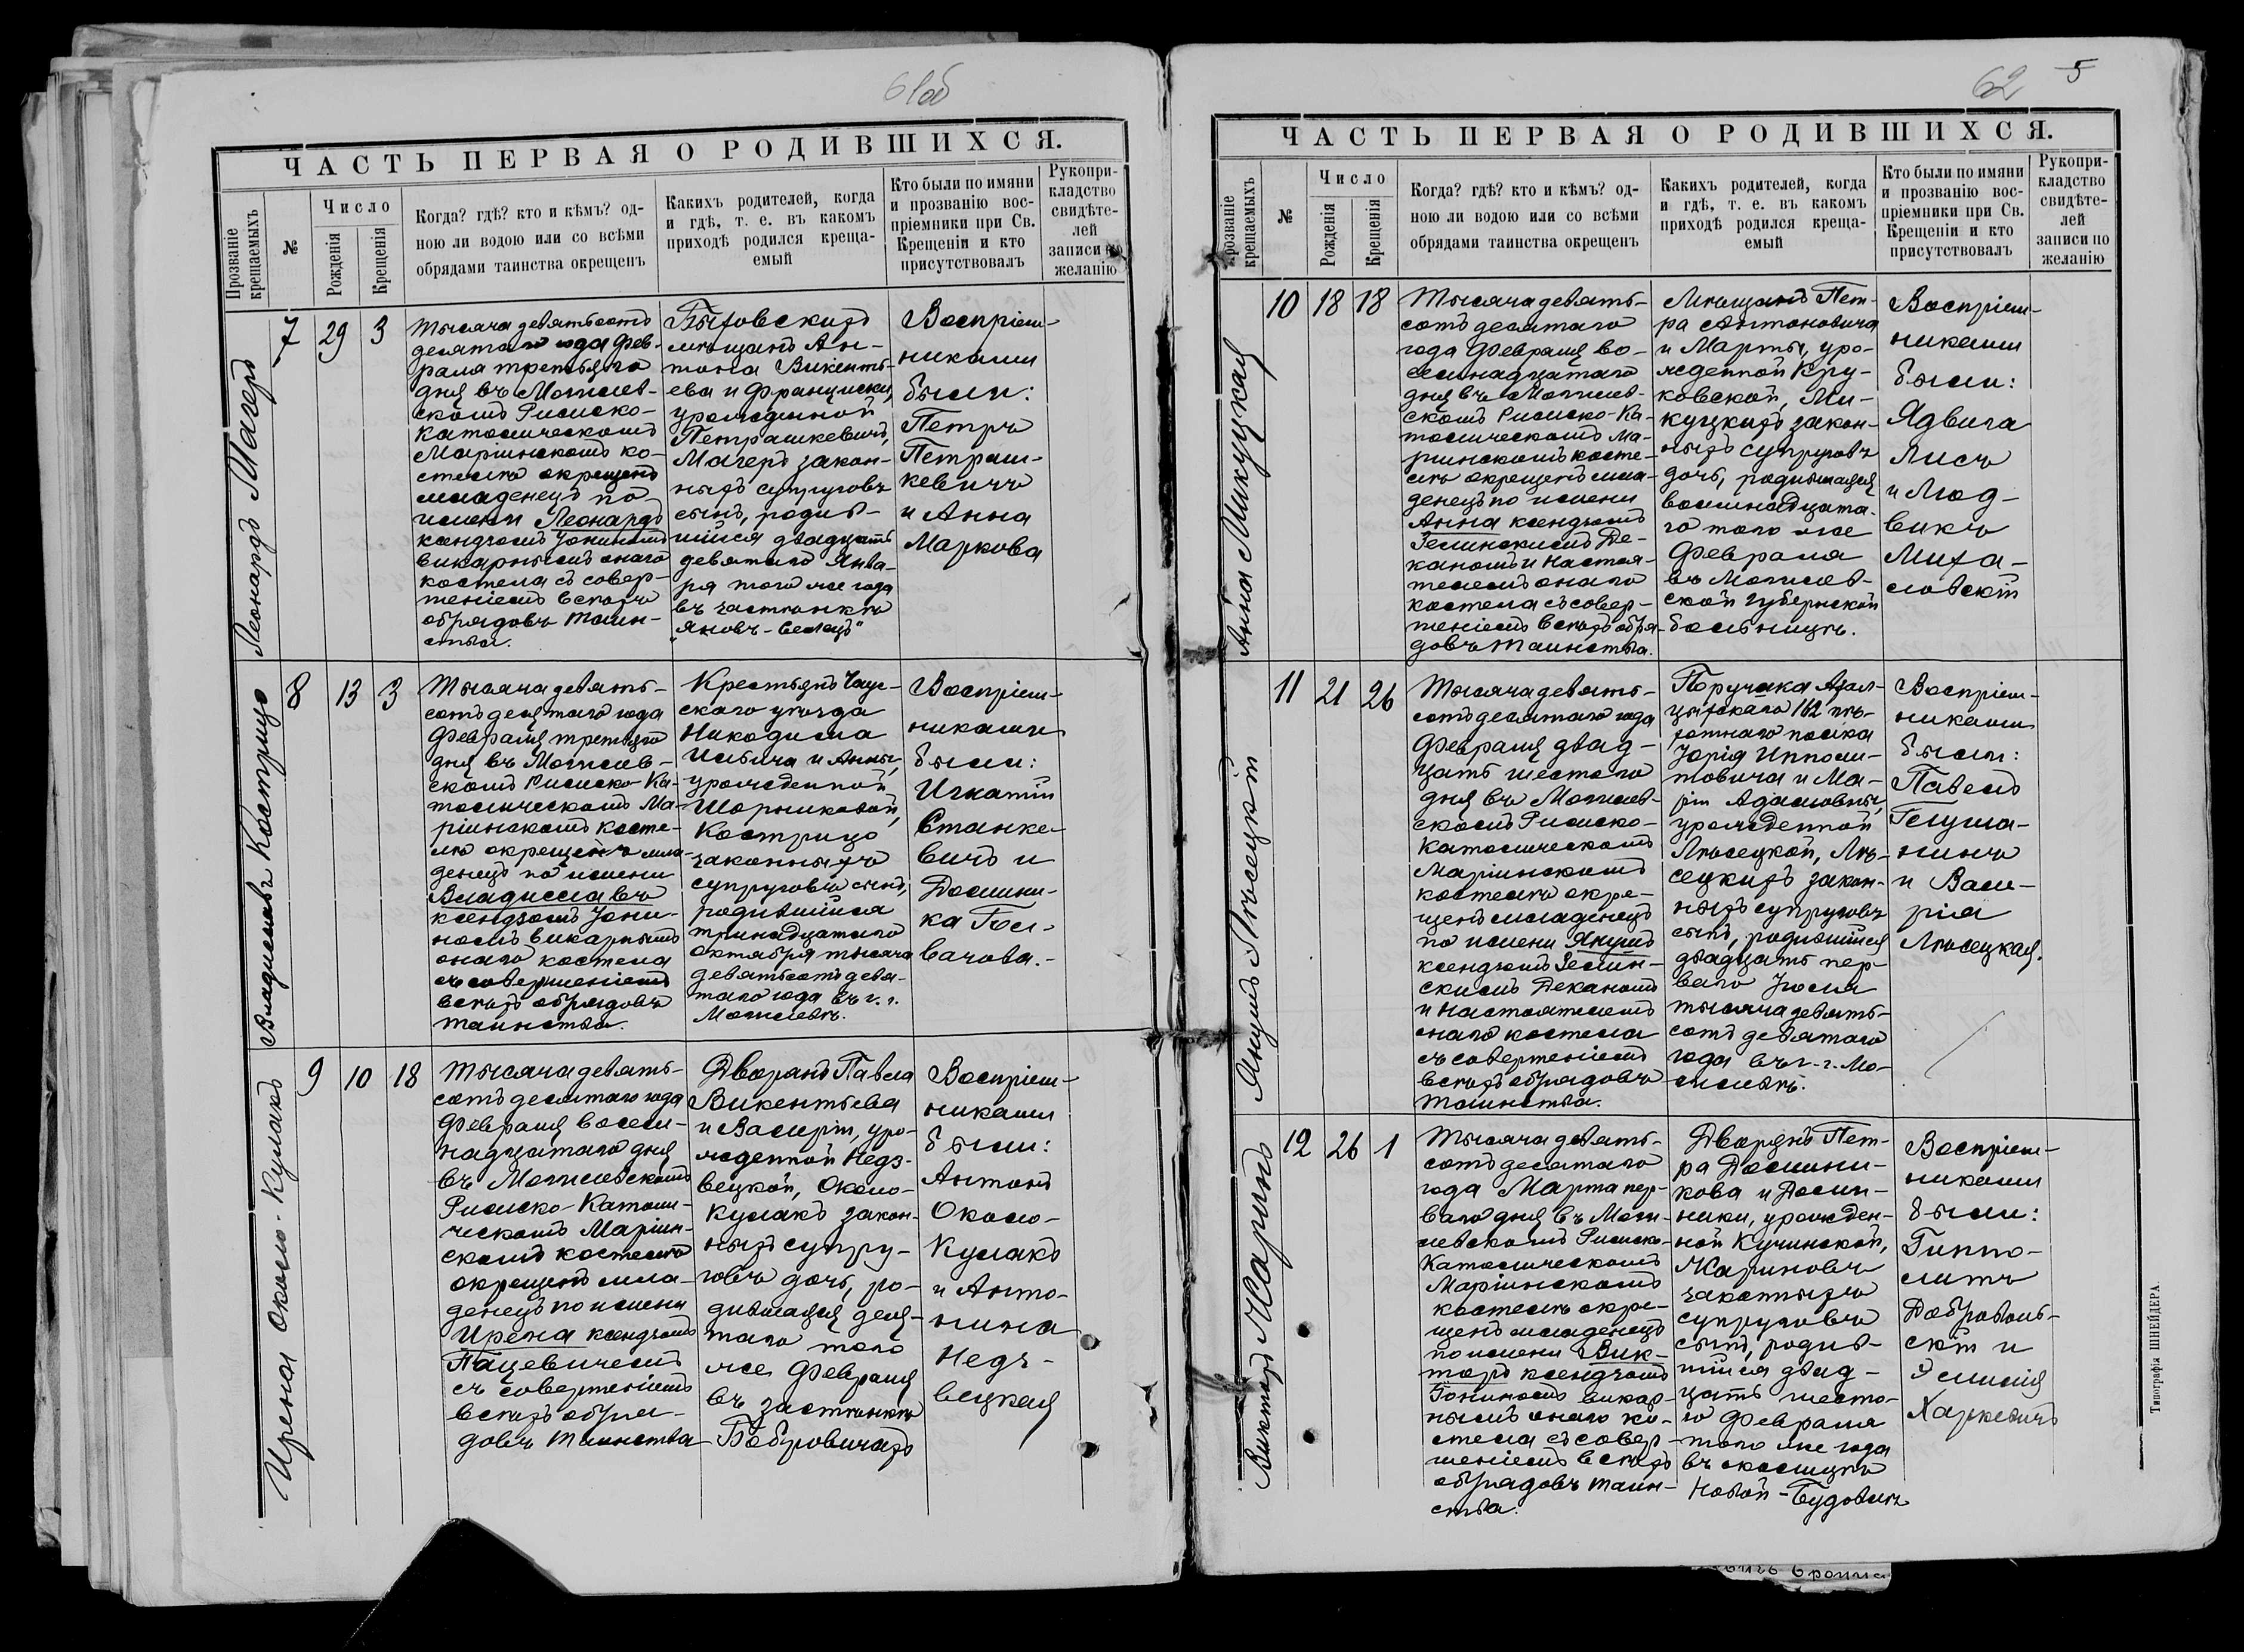 61об
ЧАСТЬ ПЕРВАЯ О РОДИВШИХСЯ.
Прозваніе крещаемыхъ
№
Число
Рожденія
Крещенія
Когда? гдѣ? кто и кѣмъ? од-
ною ли водою или со всѣми
обрядами таинства окрещенъ
Какихъ родителей, когда
и гдѣ, т. е. въ какомъ
приходѣ родился креща-
емый
Кто были по имяни
и прозванію вос-
пріемники при Св.
Крещеніи и кто
присутствовалъ
Рукопри-
кладство
свидѣте-
лей
записи по
желанію
Леонардъ Магеръ
7
29
3
Тысяча девятьсотъ
десятаго года Фев-
раля третьяго
дня въ Могилев-
скомъ Римско-
Католическомъ
Маріинскомъ ко-
стелѣ окрещенъ
младенецъ по
имени Леонардъ
ксендзомъ
викарнымъ онаго
костела съ совер-
шеніемъ всѣхъ
обрядовъ таин-
ства.
Быховскихъ
мѣщанъ Ан-
тона Викенть-
ева и Франциски,
урожденной
Петрашкевичъ,
Магеръ закон-
ныхъ супруговъ
сынъ, родив-
шійся двадцать
девятаго Янва-
ря того же года
въ застѣнкѣ
Воспріем-
никами
были:
Петръ
Петраш-
кевичъ
и Анна
Маркова
Владиславъ Кострицо
8
13
3
Тысяча девять-
сотъ десятаго года
Февраля третьяго
дня въ Могилев-
скомъ Римско-Ка-
толическомъ Ма-
ріинскомъ косте-
лѣ окрещенъ мла-
денецъ по имени
Владиславъ
ксендзомъ
викарнымъ
онаго костела
съ совершеніемъ
всѣхъ обрядовъ
таинства.
Крестьянъ Чаус-
скаго уѣзда
Никодима
и Анны,
урожденной
Шорниковой,
Кострицо
законныхъ
супруговъ сынъ,
родившійся
тринадцатаго
Октября тысяча
девятьсотъ девя-
таго года въ г. г.
Могилевѣ.
Воспріем-
никами
были:
Игнатій
Станке-
вичъ и
Домини-
ка
Ирена Около-Кулакъ
9
10
18
Тысяча девять-
сотъ десятаго года
Февраля восем-
надцатаго дня
въ Могилевскомъ
Римско-Католи-
ческомъ Маріин-
скомъ костелѣ
окрещенъ мла-
денецъ по имени
Ирена ксендзомъ
Пацевичемъ
съ совершеніемъ
всѣхъ обря-
довъ таинства
Дворянъ Павла
Викентьева
и Валеріи, уро-
жденной Недз-
вецкой, Около-
Кулакъ закон-
ныхъ супру-
говъ дочь, ро-
дившаяся деся-
таго того
же Февраля
въ застѣнкѣ
Бобровичахъ
Воспріем-
никами
были:
Антонъ
Около-
Кулакъ
и Анто-
нина
Недз-
вецкая
62 5
ЧАСТЬ ПЕРВАЯ О РОДИВШИХСЯ.
Прозваніе крещаемыхъ
№
Число
Рожденія
Крещенія
Когда? гдѣ? кто и кѣмъ? од-
ною ли водою или со всѣми
обрядами таинства окрещенъ
Какихъ родителей, когда
и гдѣ, т. е. въ какомъ
приходѣ родился креща-
емый
Кто были по имяни
и прозванію вос-
пріемники при Св.
Крещеніи и кто
присутствовалъ
Рукопри-
кладство
свидѣте-
лей
записи по
желанію
Анна Микуцкая
10
18
18
Тысяча девять-
сотъ десятаго
года Февраля во-
семнадцатаго
дня въ Могилев-
скомъ Римско-Ка-
толическомъ Ма-
ріинскомъ косте-
лѣ окрещенъ мла-
денецъ по имени
Анна ксендзомъ
Зелинскимъ Де-
каномъ и Настоя-
телемъ онаго
костела съ совер-
шеніемъ всѣхъ обря-
довъ таинства.
Мѣщанъ Пет-
ра Антоновича
и Марты, уро-
жденной Кру-
ковской, Ми-
куцкихъ закон-
ныхъ супруговъ
дочь, родившаяся
восемнадцата-
го того же
Февраля
въ Могилев-
ской губернской
больницѣ.
Воспріем-
никами
были:
Ядвига
Лисъ
и Люд-
викъ
Миха-
ловскій
Янушъ Лѣсецкій
11
21
26
Тысяча девять-
сотъ десятаго года
Февраля двад-
цать шестого
дня въ Могилев-
скомъ Римско-
Католическомъ
Маріинскомъ
костелѣ окре-
щенъ младенецъ
по имени Янушъ
ксендзомъ Зелин-
скимъ Деканомъ
и Настоятелемъ
онаго костела
съ совершеніемъ
всѣхъ обрядовъ
таинства.
Поручика Ахал-
цыхскаго 162 пѣ-
хотнаго полка
Юрія Иппoли-
товича и Ма-
ріи Адамовны,
урожденной
Лѣсецкой, Лѣ-
сецкихъ закон-
ныхъ супруговъ
сынъ, родившійся
двадцать пер-
ваго Іюля
тысяча девять-
сотъ девятаго
года въ г. г. Мо-
гилевѣ.
Воспріем-
никами
были:
Павелъ
Глуша-
нинъ
и Вале-
рія
Лѣсецкая.
Викторъ Жаринъ
12
26
1
Тысяча девять-
сотъ десятаго
года Марта пер-
ваго дня въ Моги-
левскомъ Римско-
Католическомъ
Маріинскомъ
костелѣ окре-
щенъ младенецъ
по имени Вик-
торъ ксендзомъ
викар-
нымъ онаго ко-
стела съ совер-
шеніемъ всѣхъ
обрядовъ таин-
ства.
Дворянъ Пет-
ра Домини-
кова и Доми-
ники, урожден-
ной Кучинской,
Жариновъ
законныхъ
супруговъ
сынъ, родив-
шійся двад-
цать шесто-
го Февраля
того же года
въ околицѣ
Новой-Будовкѣ
Воспріем-
никами
были:
Гиппо-
литъ
Доброволь-
скій и
Эмилія
Харкевичъ
Типографія ШНЕЙДЕРА